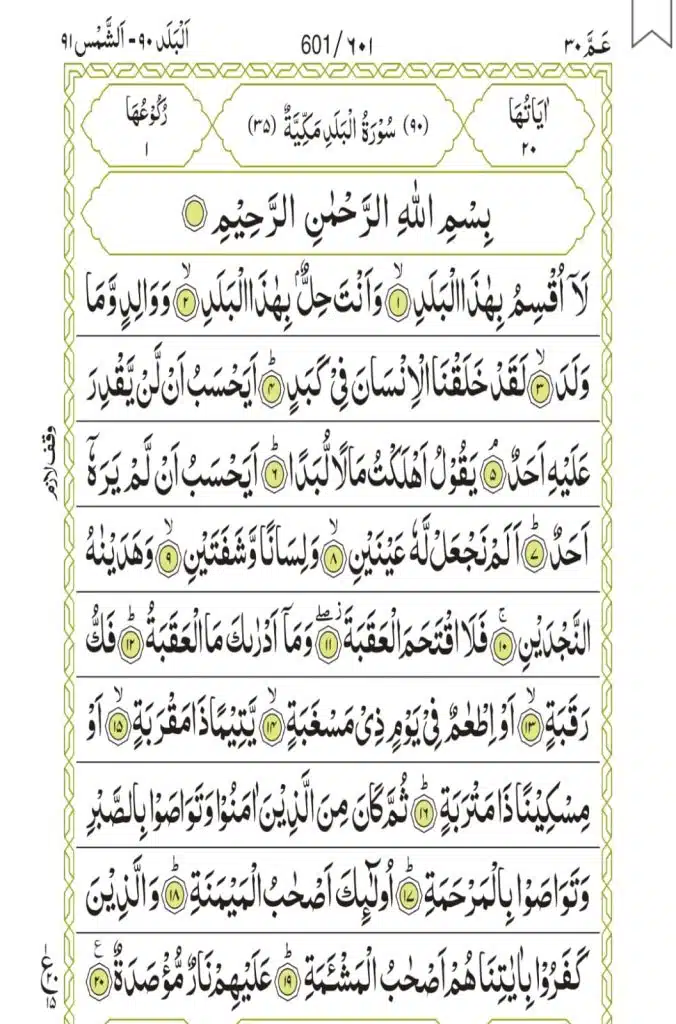 عَمَّ ٣٠
601/٦٠١
اَلْبَلَد ٩٠ - اَلشَّمْس ٩١
اٰيَاتُهَا ٢٠
(٩٠) سُوْرَةُ الْبَلَدِ مَكِّيَّةٌ (٣٥)
رُكُوْعُهَا ١
بِسْمِ اللّٰهِ الرَّحْمٰنِ الرَّحِيْمِ
لَاۤ اُقْسِمُ بِهٰذَا الْبَلَدِ ۙ‏﴿۱﴾ وَاَنْتَ حِلٌّۢ بِهٰذَا الْبَلَدِ ۙ‏﴿۲﴾ وَوَالِدٍ وَّمَا
وَلَدَ ۙ‏﴿۳﴾ لَقَدْ خَلَقْنَا الْاِنْسَانَ فِيْ كَبَدٍ ؕ‏﴿۴﴾ اَيَحْسَبُ اَنْ لَّنْ يَّقْدِرَ
عَلَيْهِ اَحَدٌ ۘ‏﴿۵﴾ يَقُوْلُ اَهْلَكْتُ مَالًا لُّبَدًا ؕ‏﴿۶﴾ اَيَحْسَبُ اَنْ لَّمْ يَرَهٗۤ
وقف لازم
اَحَدٌ ؕ‏﴿۷﴾ اَلَمْ نَجْعَلْ لَّهٗ عَيْنَيْنِ ۙ‏﴿۸﴾ وَلِسَانًا وَّشَفَتَيْنِ ۙ‏﴿۹﴾ وَهَدَيْنٰهُ
النَّجْدَيْنِ ۚ‏﴿۱۰﴾ فَلَا اقْتَحَمَ الْعَقَبَةَ ؗۖ‏﴿۱۱﴾ وَمَاۤ اَدْرٰىكَ مَا الْعَقَبَةُ ؕ‏﴿۱۲﴾ فَكُّ
رَقَبَةٍ ۙ‏﴿۱۳﴾ اَوْ اِطْعٰمٌ فِيْ يَوْمٍ ذِيْ مَسْغَبَةٍ ۙ‏﴿۱۴﴾ يَّتِيْمًا ذَا مَقْرَبَةٍ ۙ‏﴿۱۵﴾ اَوْ
مِسْكِيْنًا ذَا مَتْرَبَةٍ ؕ‏﴿۱۶﴾ ثُمَّ كَانَ مِنَ الَّذِيْنَ اٰمَنُوْا وَتَوَاصَوْا بِالصَّبْرِ
وَتَوَاصَوْا بِالْمَرْحَمَةِ ؕ‏﴿۱۷﴾ اُولٰٓئِكَ اَصْحٰبُ الْمَيْمَنَةِ ؕ‏﴿۱۸﴾ وَالَّذِيْنَ
كَفَرُوْا بِاٰيٰتِنَا هُمْ اَصْحٰبُ الْمَشْـَٔمَةِ ؕ‏﴿۱۹﴾ عَلَيْهِمْ نَارٌ مُّؤْصَدَةٌ ‏﴿۲۰﴾ ع
ع ١ ٢٠ ١٥